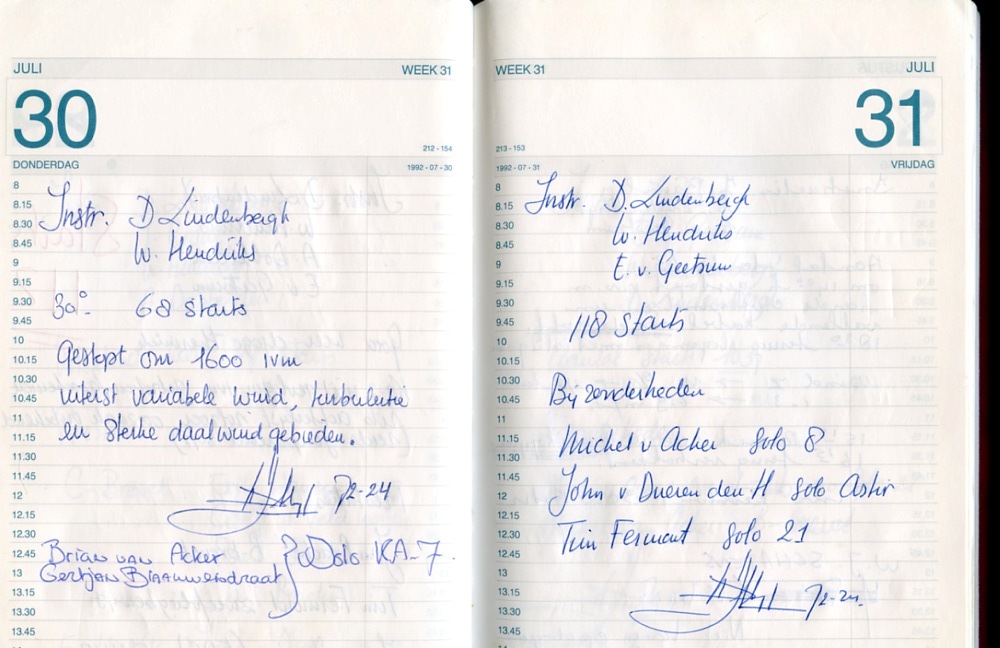 JULI
WEEK 31
30
212 - 154
DONDERDAG
1992 - 07 - 30
8
8.15
8.30
8.45
9
9.15
9.30
9.45
10
10.15
10.30
10.45
11
11.15
11.30
11.45
12
12.15
12.30
12.45
13
13.15
13.30
13.45
Instr. D Lindenbergh
W. Hendriks
30° 68 starts
Gestopt om 1600 ivm
uiterst variabele wind, turbulentie
en sterke daalwind gebieden.
72-24
Brian van Acker
Gertjan
Solo KA-7
WEEK 31
JULI
31
213 - 153
1992 - 07 - 31
VRIJDAG
8
8.15
8.30
8.45
9
9.15
9.30
9.45
10
10.15
10.30
10.45
11
11.15
11.30
11.45
12
12.15
12.30
12.45
13
13.15
13.30
13.45
Instr. D. Lindenbergh
W. Hendriks
E. v. Geetsum
118 starts
Bijzonderheden
Michel v Acker Solo 8
John v Dueren den H Solo Astir
Tim Fermont Solo 21
72-24.